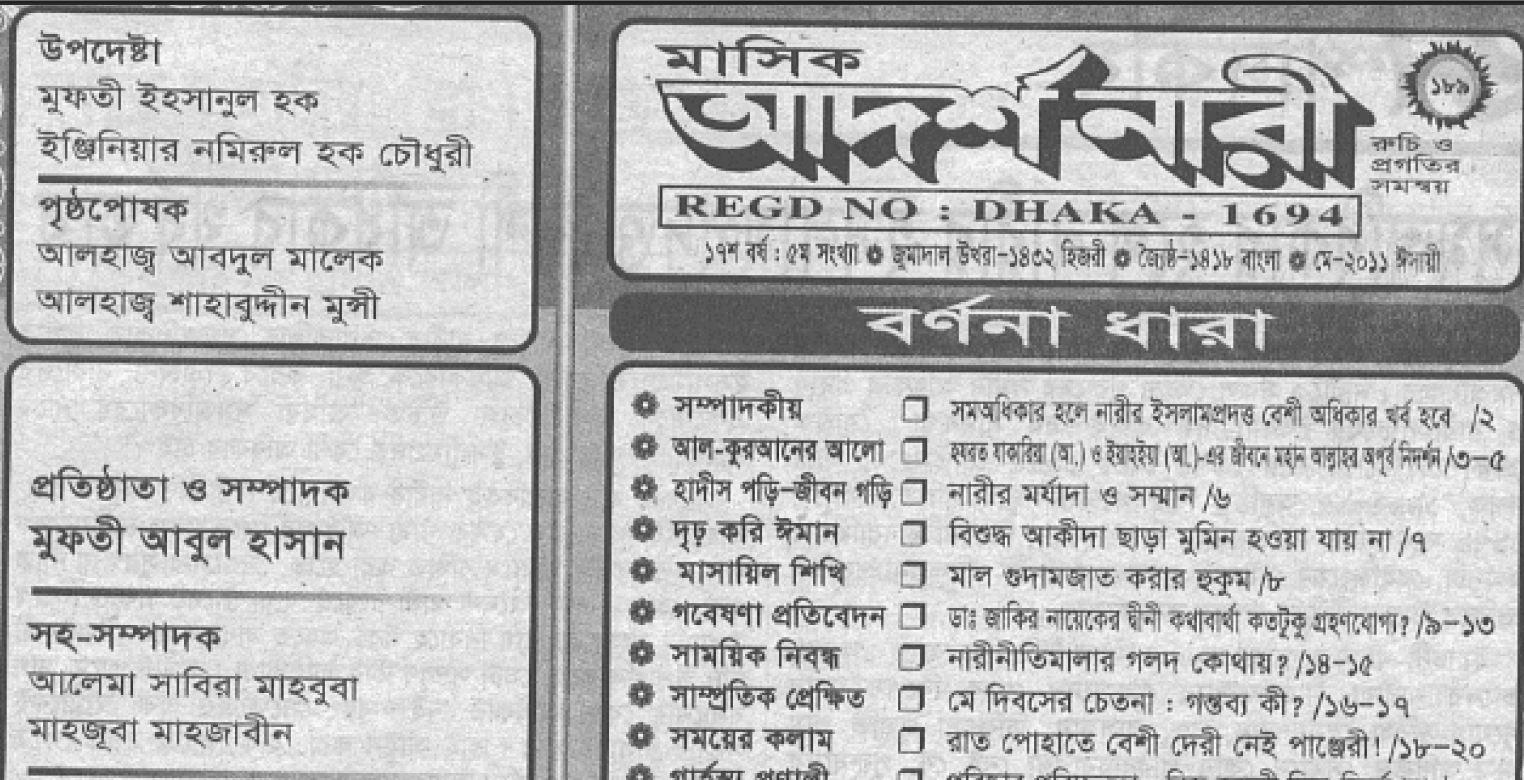 উপদেষ্টা
মুফতী ইহসানুল হক
ইঞ্জিনিয়ার নমিরুল হক চৌধুরী
পৃষ্ঠপোষক
আলহাজ্ব আবদুল মালেক
আলহাজ্ব শাহাবুদ্দীন মুন্সী
প্রতিষ্ঠাতা ও সম্পাদক
মুফতী আবুল হাসান
সহ-সম্পাদক
আলেমা সাবিরা মাহবুবা
মাহজূবা মাহজাবীন
মাসিক
আদর্শ নারী
১৮৯
রুচি ও
প্রগতির
সমন্বয়
REGD NO : DHAKA - 1694
১৭শ বর্ষ : ৫ম সংখ্যা জুমাদাল উখরা-১৪৩২ হিজরী জ্যৈষ্ঠ-১৪১৮ বাংলা মে-২০১১ ঈসায়ী
বর্ণনা ধারা
সম্পাদকীয় সমঅধিকার হলে নারীর ইসলামপ্রদত্ত বেশী অধিকার খর্ব হবে /২
আল-কুরআনের আলো হযরত যাকারিয়া (আ.) ও ইয়াহইয়া (আ.)-এর জীবনে মহান আল্লাহর অপূর্ব নিদর্শন /৩-৫
হাদীস পড়ি-জীবন গড়ি নারীর মর্যাদা ও সম্মান /৬
দৃঢ় করি ঈমান বিশুদ্ধ আকীদা ছাড়া মুমিন হওয়া যায় না /৭
মাসায়িল শিখি মাল গুদামজাত করার হুকুম /৮
গবেষণা প্রতিবেদন ডাঃ জাকির নায়েকের দ্বীনী কথাবার্থা কতটুকু গ্রহণযোগ্য? /৯-১৩
সাময়িক নিবন্ধ নারীনীতিমালার গলদ কোথায়? /১৪-১৫
সাম্প্রতিক প্রেক্ষিত মে দিবসের চেতনা : গন্তব্য কী? /১৬-১৭
সময়ের কলাম রাত পোহাতে বেশী দেরী নেই পাঞ্জেরী! /১৮-২০